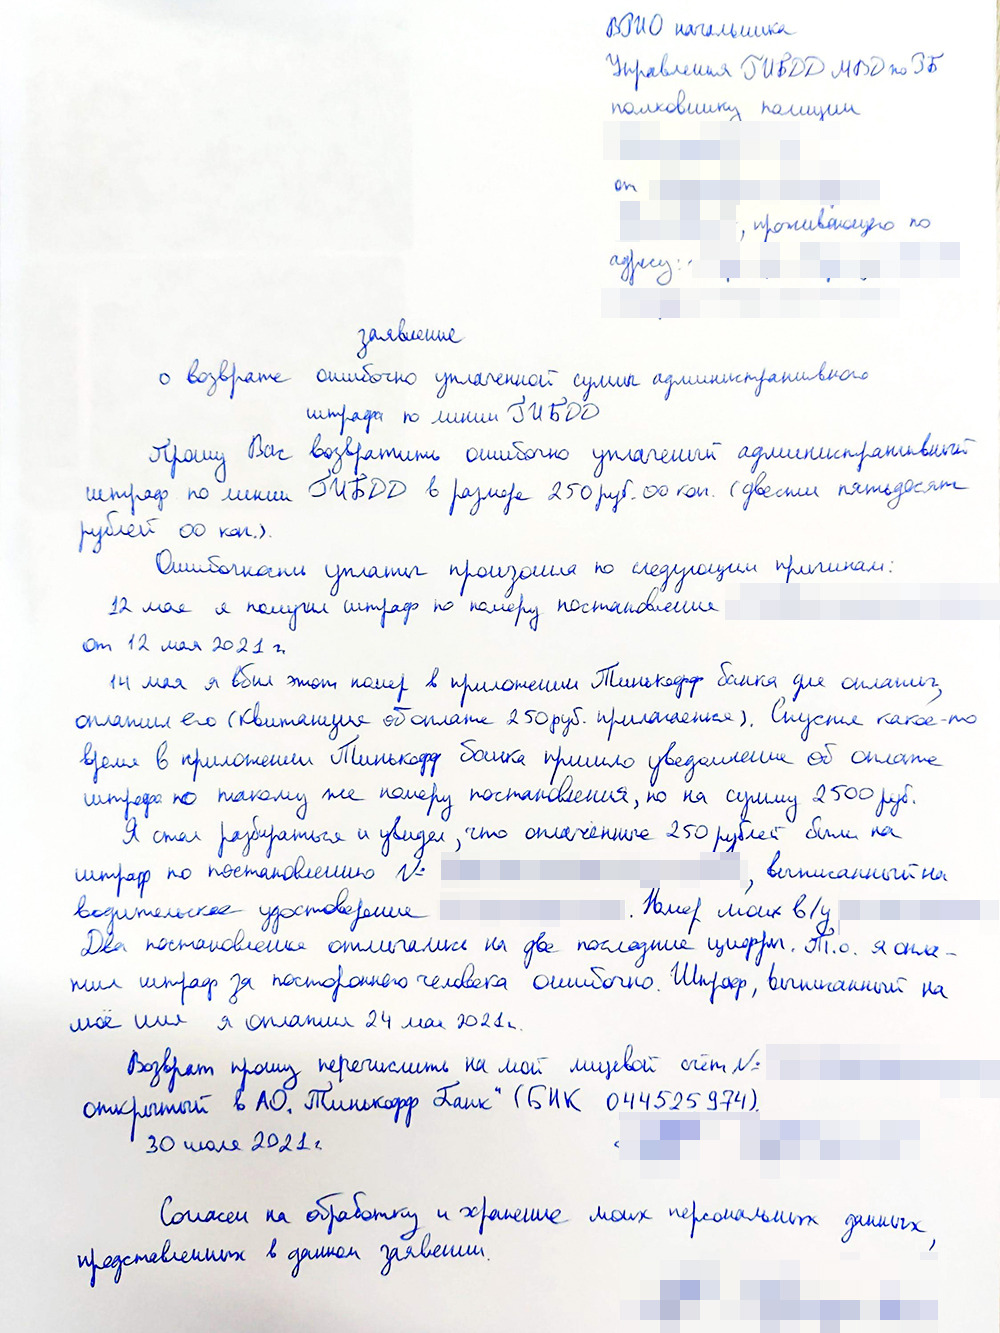 ВРИО начальника
Управления ГИБДД МВД по РБ
полковнику полиции
от
, проживающего по
адресу:
заявление
о возврате ошибочно уплаченной суммы административного
штрафа по линии ГИБДД
Прошу Вас возвратить ошибочно уплаченный административный
штраф по линии ГИБДД в размере 250 руб. 00 коп. (двести пятьдесят
рублей 00 коп.).
Ошибочность уплаты произошла по следующим причинам:
12 мая я получил штраф по номеру постановления
от 12 мая 2021 г.
14 мая я вбил этот номер в приложении Тинькофф банка для оплаты,
оплатил его (квитанция об оплате 250 руб. прилагается). Спустя какое-то
время в приложении Тинькофф банка пришло уведомление об оплате
штрафа по такому же номеру постановления, но на сумму 2500 руб.
Я стал разбираться и увидел, что оплаченные 250 рублей были на
штраф по постановлению №
, выписанный на
водительское удостоверение
. Номер моих в/у
Два постановления отличались на две последние цифры. Т.о. я опла-
тил штраф за постороннего человека ошибочно. Штраф, выписанный на
моё имя я оплатил 24 мая 2021 г.
Возврат прошу перечислить на мой лицевой счёт №
открытый в АО „Тинькофф Банк" (БИК 044525974).
30 июля 2021 г.
Согласен на обработку и хранение моих персональных данных,
представленных в данном заявлении.